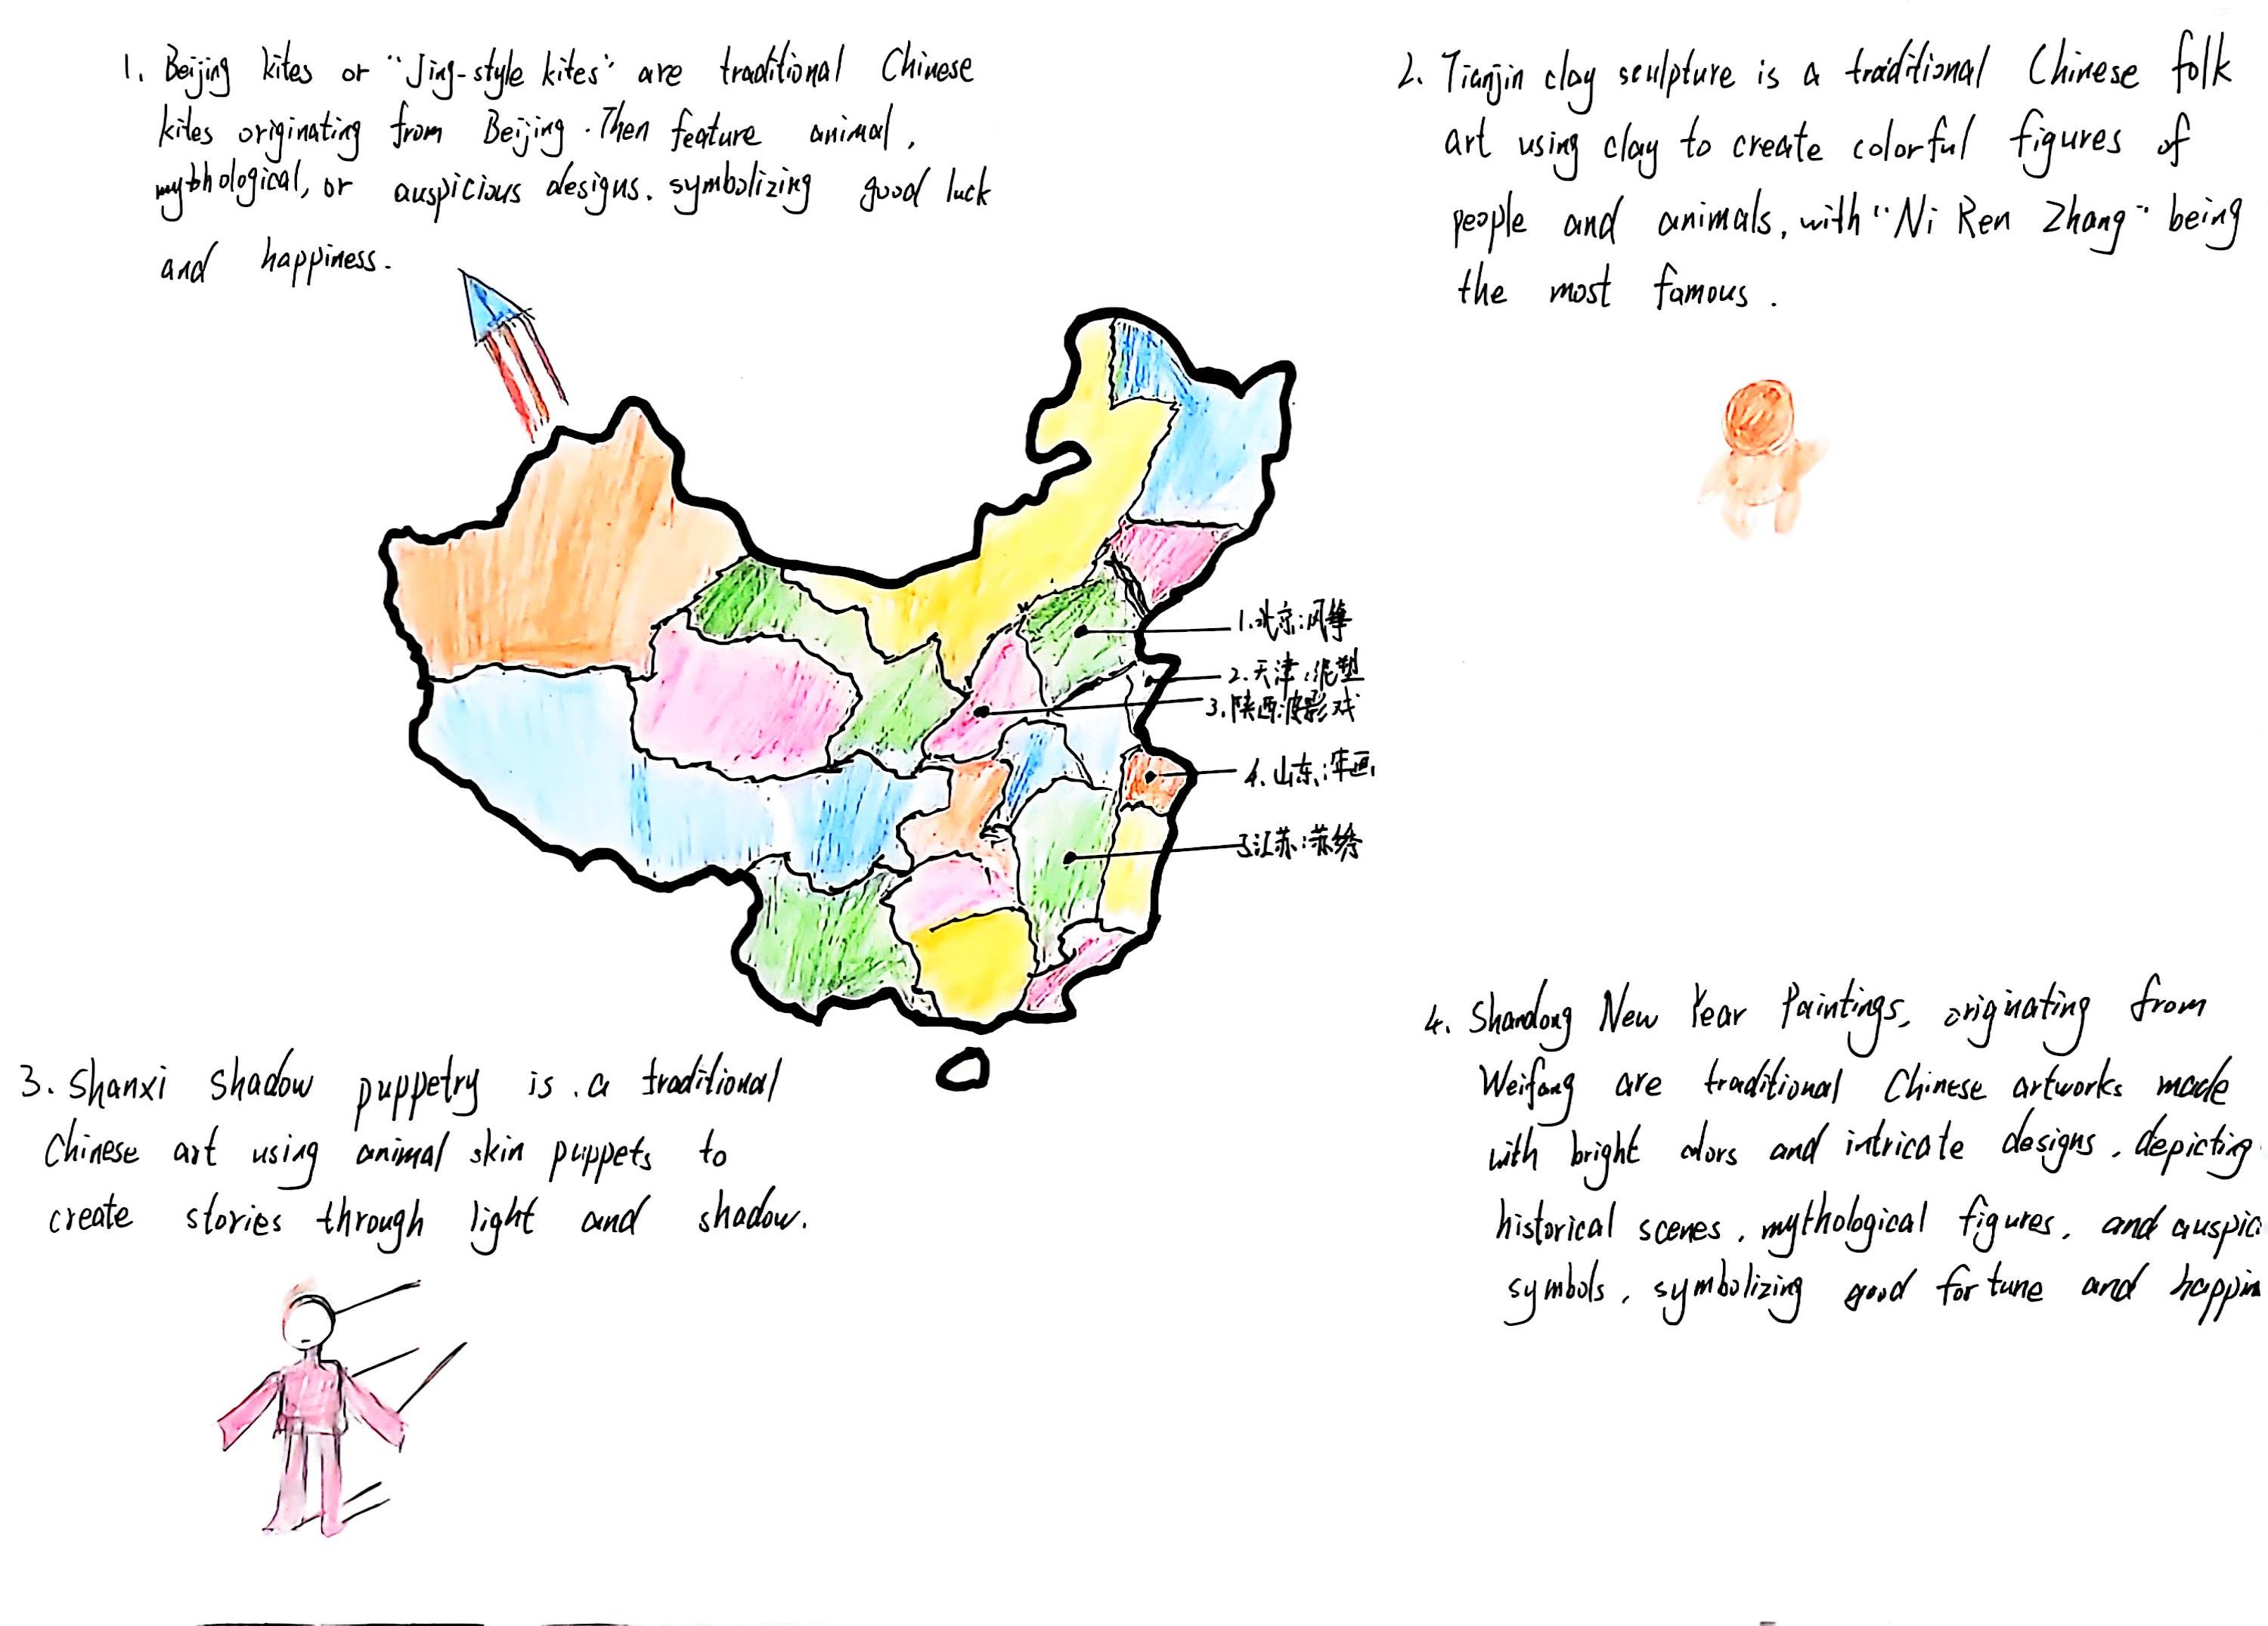 1. Beijing kites or "Jing-style kites" are traditional Chinese
kites originating from Beijing. Then feature animal,
mythological, or auspicious designs. symbolizing good luck
and happiness.
2. Tianjin clay sculpture is a traditional Chinese folk
art using clay to create colorful figures of
people and animals, with "Ni Ren Zhang" being
the most famous.
1.北京:风筝
2.天津:泥塑
3.陕西:皮影戏
4.山东:年画
5江苏:苏绣
3. Shanxi shadow puppetry is a traditional
Chinese art using animal skin puppets to
create stories through light and shadow.
4. Shandong New Year Paintings, originating from
Weifang are traditional Chinese artworks made
with bright colors and intricate designs, depicting
historical scenes, mythological figures, and auspici
symbols, symbolizing good fortune and happin